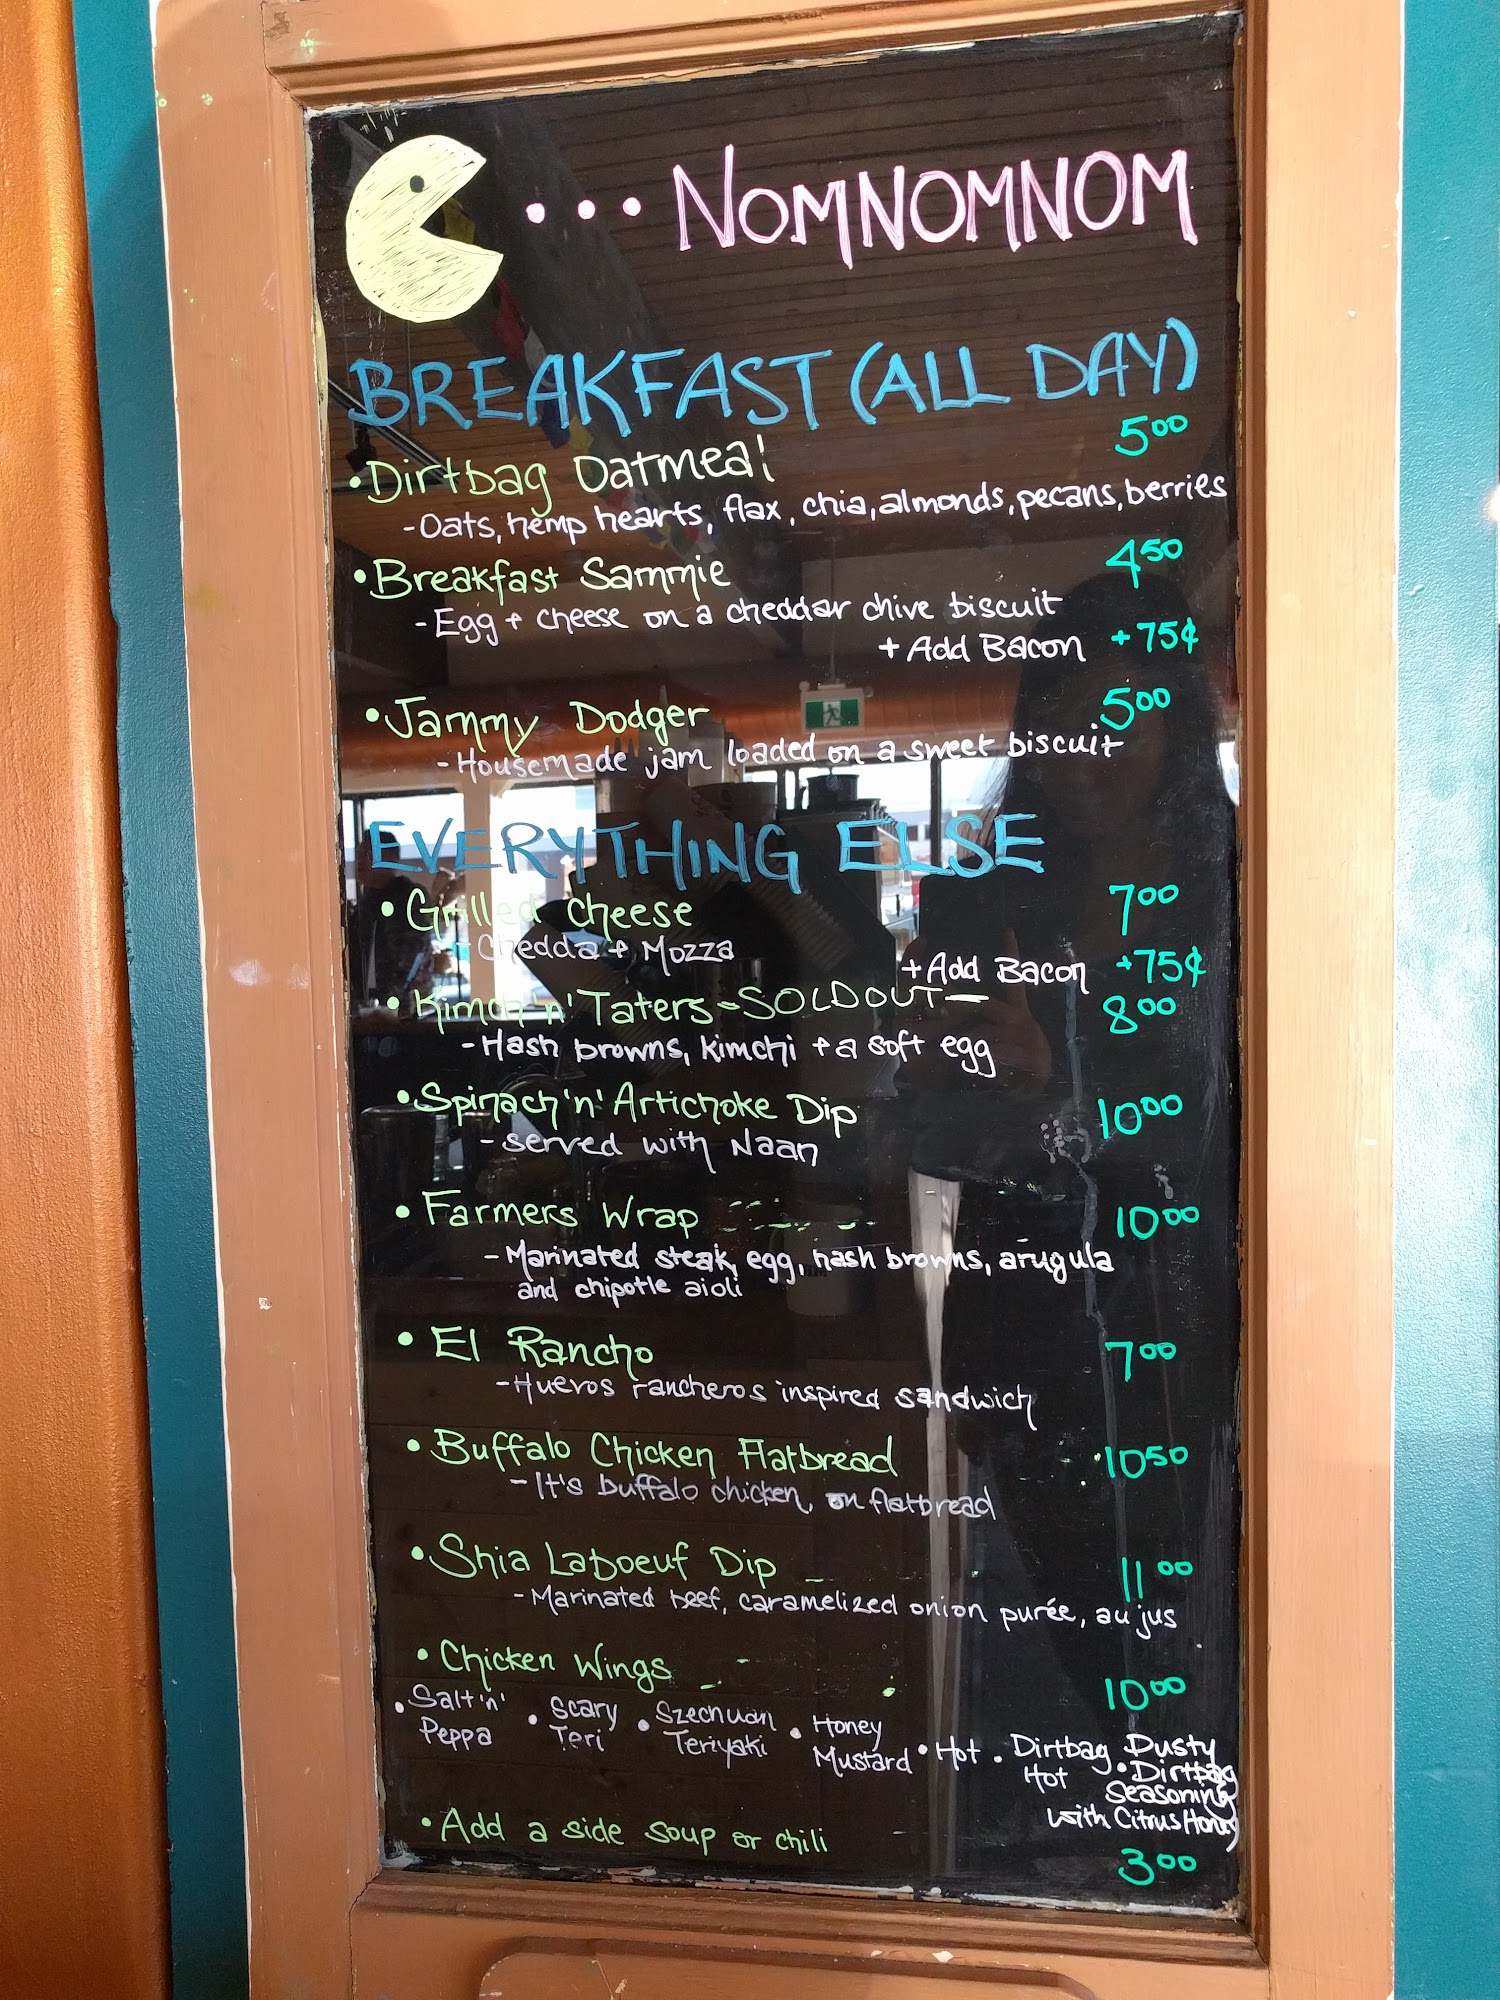 ... NOMNOMNOM
BREAKFAST (ALL DAY)
• Dirtbag Oatmeal 5⁰⁰
- Oats, hemp hearts, flax, chia, almonds, pecans, berries
• Breakfast Sammie 4⁵⁰
- Egg + cheese on a cheddar chive biscuit
+ Add Bacon +75¢
• Jammy Dodger 5⁰⁰
- Housemade jam loaded on a sweet biscuit
EVERYTHING ELSE
• Grilled Cheese 7⁰⁰
- Chedda + Mozza
+ Add Bacon +75¢
• Kimch'n'Taters - SOLD OUT - 8⁰⁰
- Hash browns, kimchi + a soft egg
• Spinach'n'Artichoke Dip 10⁰⁰
- served with Naan
• Farmers Wrap 10⁰⁰
- Marinated steak, egg, hash browns, arugula
and chipotle aioli
• El Rancho 7⁰⁰
- Huevos rancheros inspired sandwich
• Buffalo Chicken Flatbread 10⁵⁰
- It's buffalo chicken, on flatbread
• Shia Laboeuf Dip 11⁰⁰
- Marinated beef, caramelized onion purée, au jus
• Chicken Wings 10⁰⁰
• Salt'n' Peppa • Scary Teri • Szechuan Teriyaki • Honey Mustard • Hot • Dirtbag Hot • Dusty Dirtbag Seasoning with Citrus Honey
• Add a side soup or chili 3⁰⁰